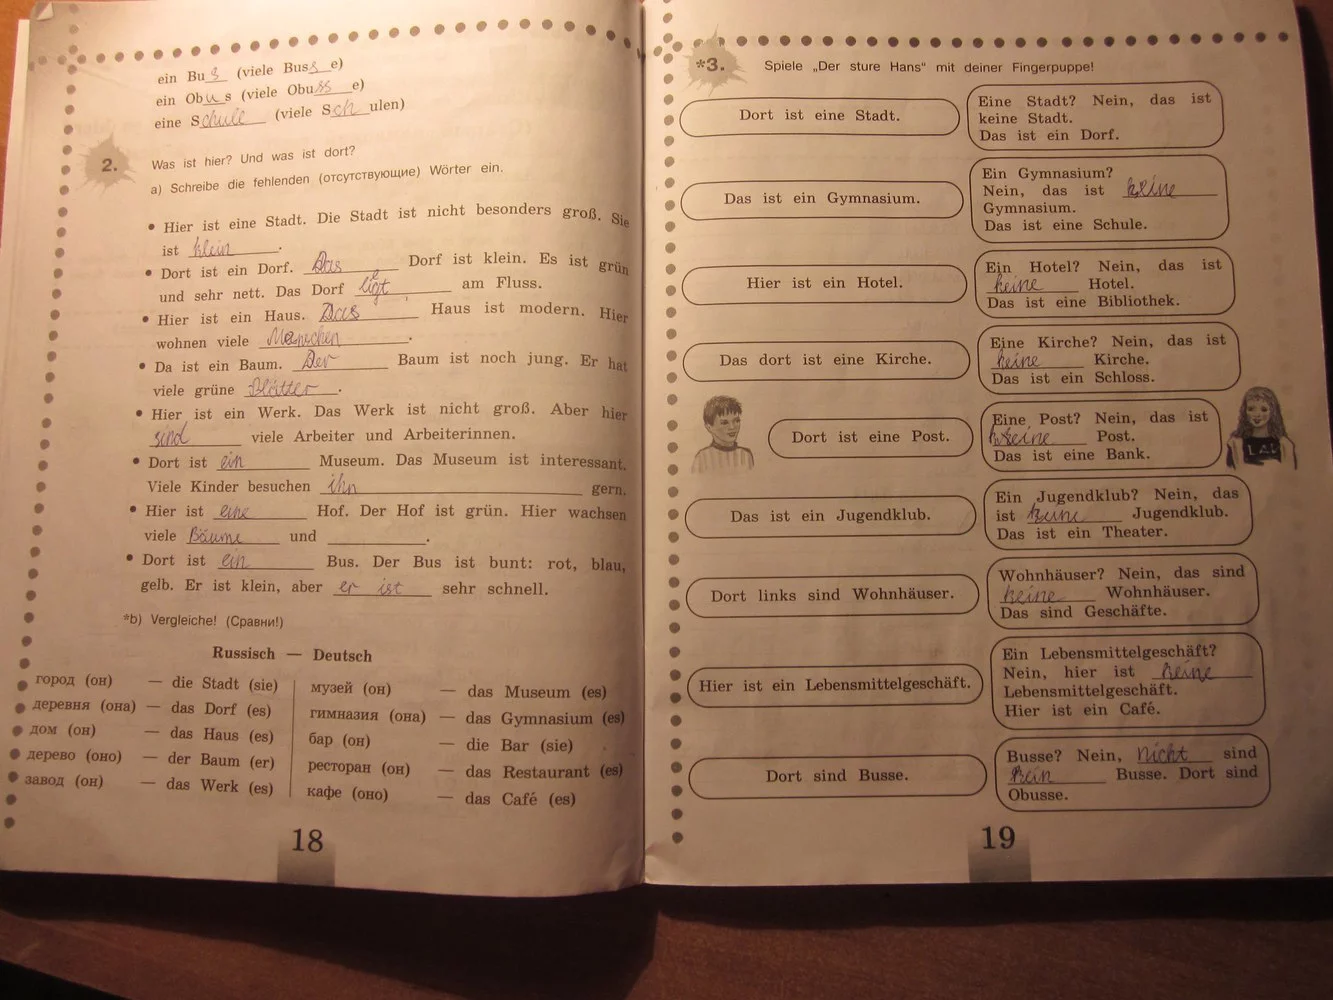 ein Bus (viele Busse)
ein Obus (viele Obusse)
eine Schule (viele Schulen)
2.
Was ist hier? Und was ist dort?
a) Schreibe die fehlenden (отсутствующие) Wörter ein.
• Hier ist eine Stadt. Die Stadt ist nicht besonders groß. Sie
ist klein.
• Dort ist ein Dorf. Das Dorf ist klein. Es ist grün
und sehr nett. Das Dorf liegt am Fluss.
• Hier ist ein Haus. Das Haus ist modern. Hier
wohnen viele Menschen.
• Da ist ein Baum. Der Baum ist noch jung. Er hat
viele grüne Blätter.
• Hier ist ein Werk. Das Werk ist nicht groß. Aber hier
sind viele Arbeiter und Arbeiterinnen.
• Dort ist ein Museum. Das Museum ist interessant.
Viele Kinder besuchen ihn gern.
• Hier ist eine Hof. Der Hof ist grün. Hier wachsen
viele Bäume und ____.
• Dort ist ein Bus. Der Bus ist bunt: rot, blau,
gelb. Er ist klein, aber er ist sehr schnell.
*b) Vergleiche! (Сравни!)
Russisch — Deutsch
город (он) — die Stadt (sie)
деревня (она) — das Dorf (es)
дом (он) — das Haus (es)
дерево (оно) — der Baum (er)
завод (он) — das Werk (es)
музей (он) — das Museum (es)
гимназия (она) — das Gymnasium (es)
бар (он) — die Bar (sie)
ресторан (он) — das Restaurant (es)
кафе (оно) — das Café (es)
18
*3.
Spiele „Der sture Hans“ mit deiner Fingerpuppe!
Dort ist eine Stadt.
Eine Stadt? Nein, das ist
keine Stadt.
Das ist ein Dorf.
Das ist ein Gymnasium.
Ein Gymnasium?
Nein, das ist keine
Gymnasium.
Das ist eine Schule.
Hier ist ein Hotel.
Ein Hotel? Nein, das ist
keine Hotel.
Das ist eine Bibliothek.
Das dort ist eine Kirche.
Eine Kirche? Nein, das ist
keine Kirche.
Das ist ein Schloss.
Dort ist eine Post.
Eine Post? Nein, das ist
keine Post.
Das ist eine Bank.
Das ist ein Jugendklub.
Ein Jugendklub? Nein, das
ist keine Jugendklub.
Das ist ein Theater.
Dort links sind Wohnhäuser.
Wohnhäuser? Nein, das sind
keine Wohnhäuser.
Das sind Geschäfte.
Hier ist ein Lebensmittelgeschäft.
Ein Lebensmittelgeschäft?
Nein, hier ist keine
Lebensmittelgeschäft.
Hier ist ein Café.
Dort sind Busse.
Busse? Nein, nicht sind
kein Busse. Dort sind
Obusse.
19